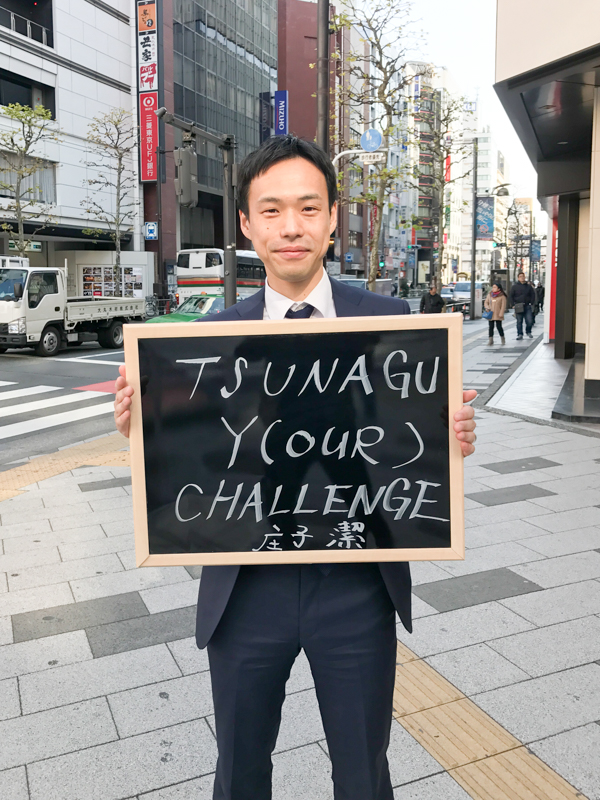 三菱東京UFJ銀行
MIZUHO
TSUNAGU
Y(OUR)
CHALLENGE
庄子 潔